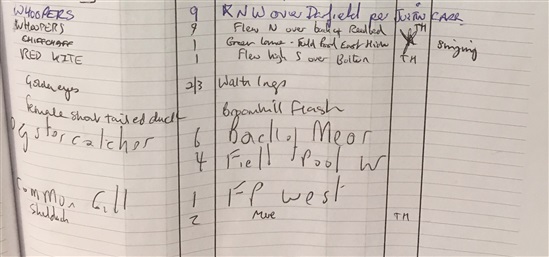 WHOOPERS 9 NNW over Darfield per JUSTIN CARR
WHOOPERS 9 Flew N over Reedbed TM
CHIFFCHAFF 1 Green Lane - Field Pool East singing
RED KITE 1 Flew high S over Bolton TM
Goldeneyes 2/3 Wath Ings
female short tailed duck Broomhill Flash
Oystercatcher 6 Back of Meor
4 Fiell Pool W
Common Gill 1 FP west
Shelduck 2 Mere TM